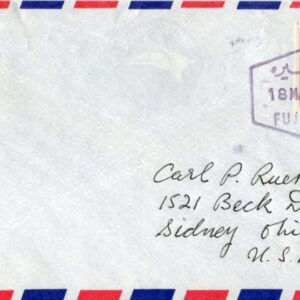 يره
18 MA
FUJ
Carl P. Rues
1521 Beck D
Sidney Ohi
U.S.